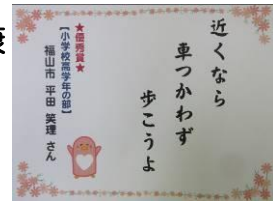 近くなら
車つかわず
歩こうよ
★優秀賞★
【小学校高学年の部】
福山市 平田 笑理 さん